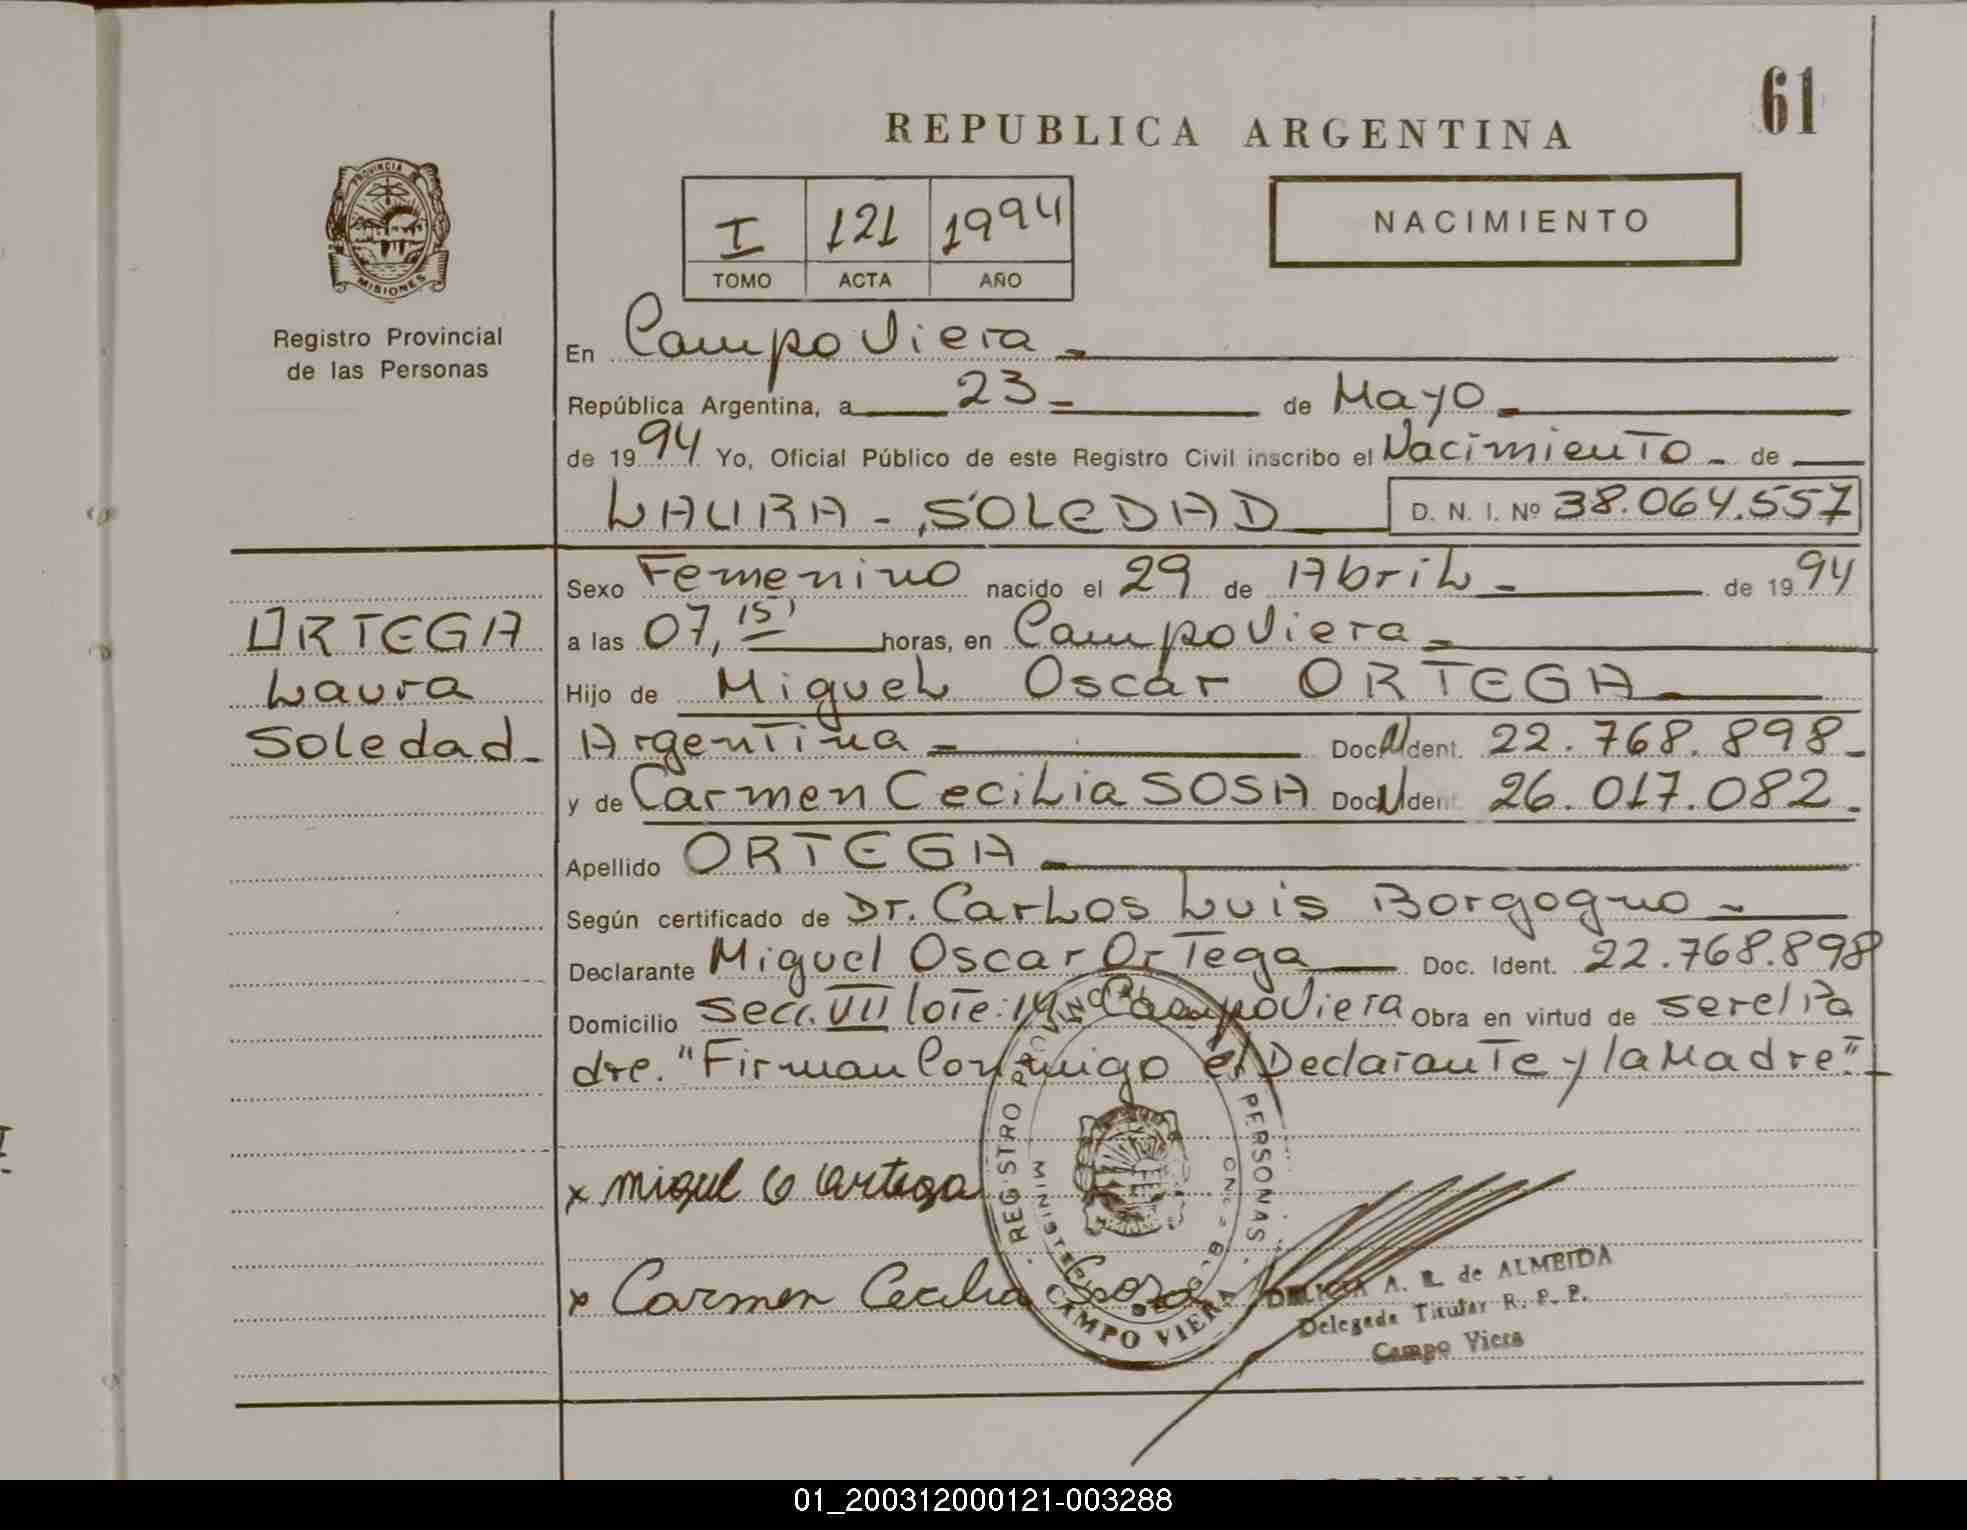 61
REPUBLICA ARGENTINA
PROVINCIA DE
MISIONES
Registro Provincial
de las Personas
I 121 1994
TOMO ACTA AÑO
NACIMIENTO
En Campo Viera
República Argentina, a 23 de Mayo
de 1994 Yo, Oficial Público de este Registro Civil inscribo el Nacimiento de
LAURA - SOLEDAD D. N. I. Nº 38.064.557
Sexo Femenino nacido el 29 de Abril de 1994
ORTEGA
Laura
Soledad
a las 07,15' horas, en Campo Viera
Hijo de Miguel Oscar ORTEGA
Argentina Doc. Ident. 22.768.898
y de Carmen Cecilia SOSA Doc. Ident. 26.017.082
Apellido ORTEGA
Según certificado de Dr. Carlos Luis Borgogno
Declarante Miguel Oscar Ortega Doc. Ident. 22.768.898
Domicilio Secc. VII lote: 14 Campo Viera Obra en virtud de ser el Pa
dre. "Firman Conmigo el Declarante y la Madre"
x miguel O Ortega
x Carmen Cecilia Sosa
REGISTRO PROVINCIAL PERSONAS
CAMPO VIERA
A. R. de ALMEIDA
Delegada Titular R. P. P.
Campo Viera
01_200312000121-003288